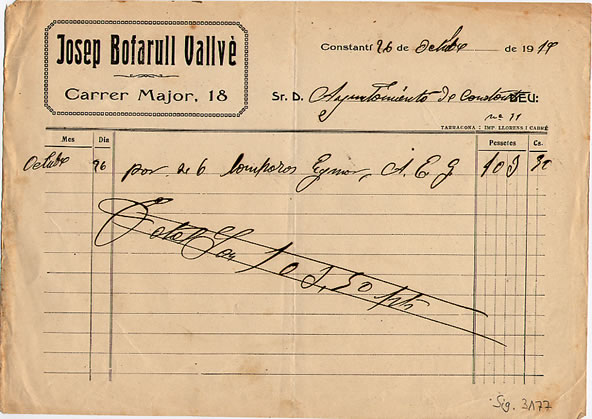 Josep Bofarull Vallvè
Carrer Major, 18
Constantí 26 de Octubre de 1919
Sr. D. Ayuntamiento de Constantí DEU:
nº 11
TARRAGONA : IMP. LLORENS I CABRÉ
Mes Dia Pessetes Cs.
Octubre 26 por de 6 A. E. G 105 30
Total 105,30 pts
Sig. 3177